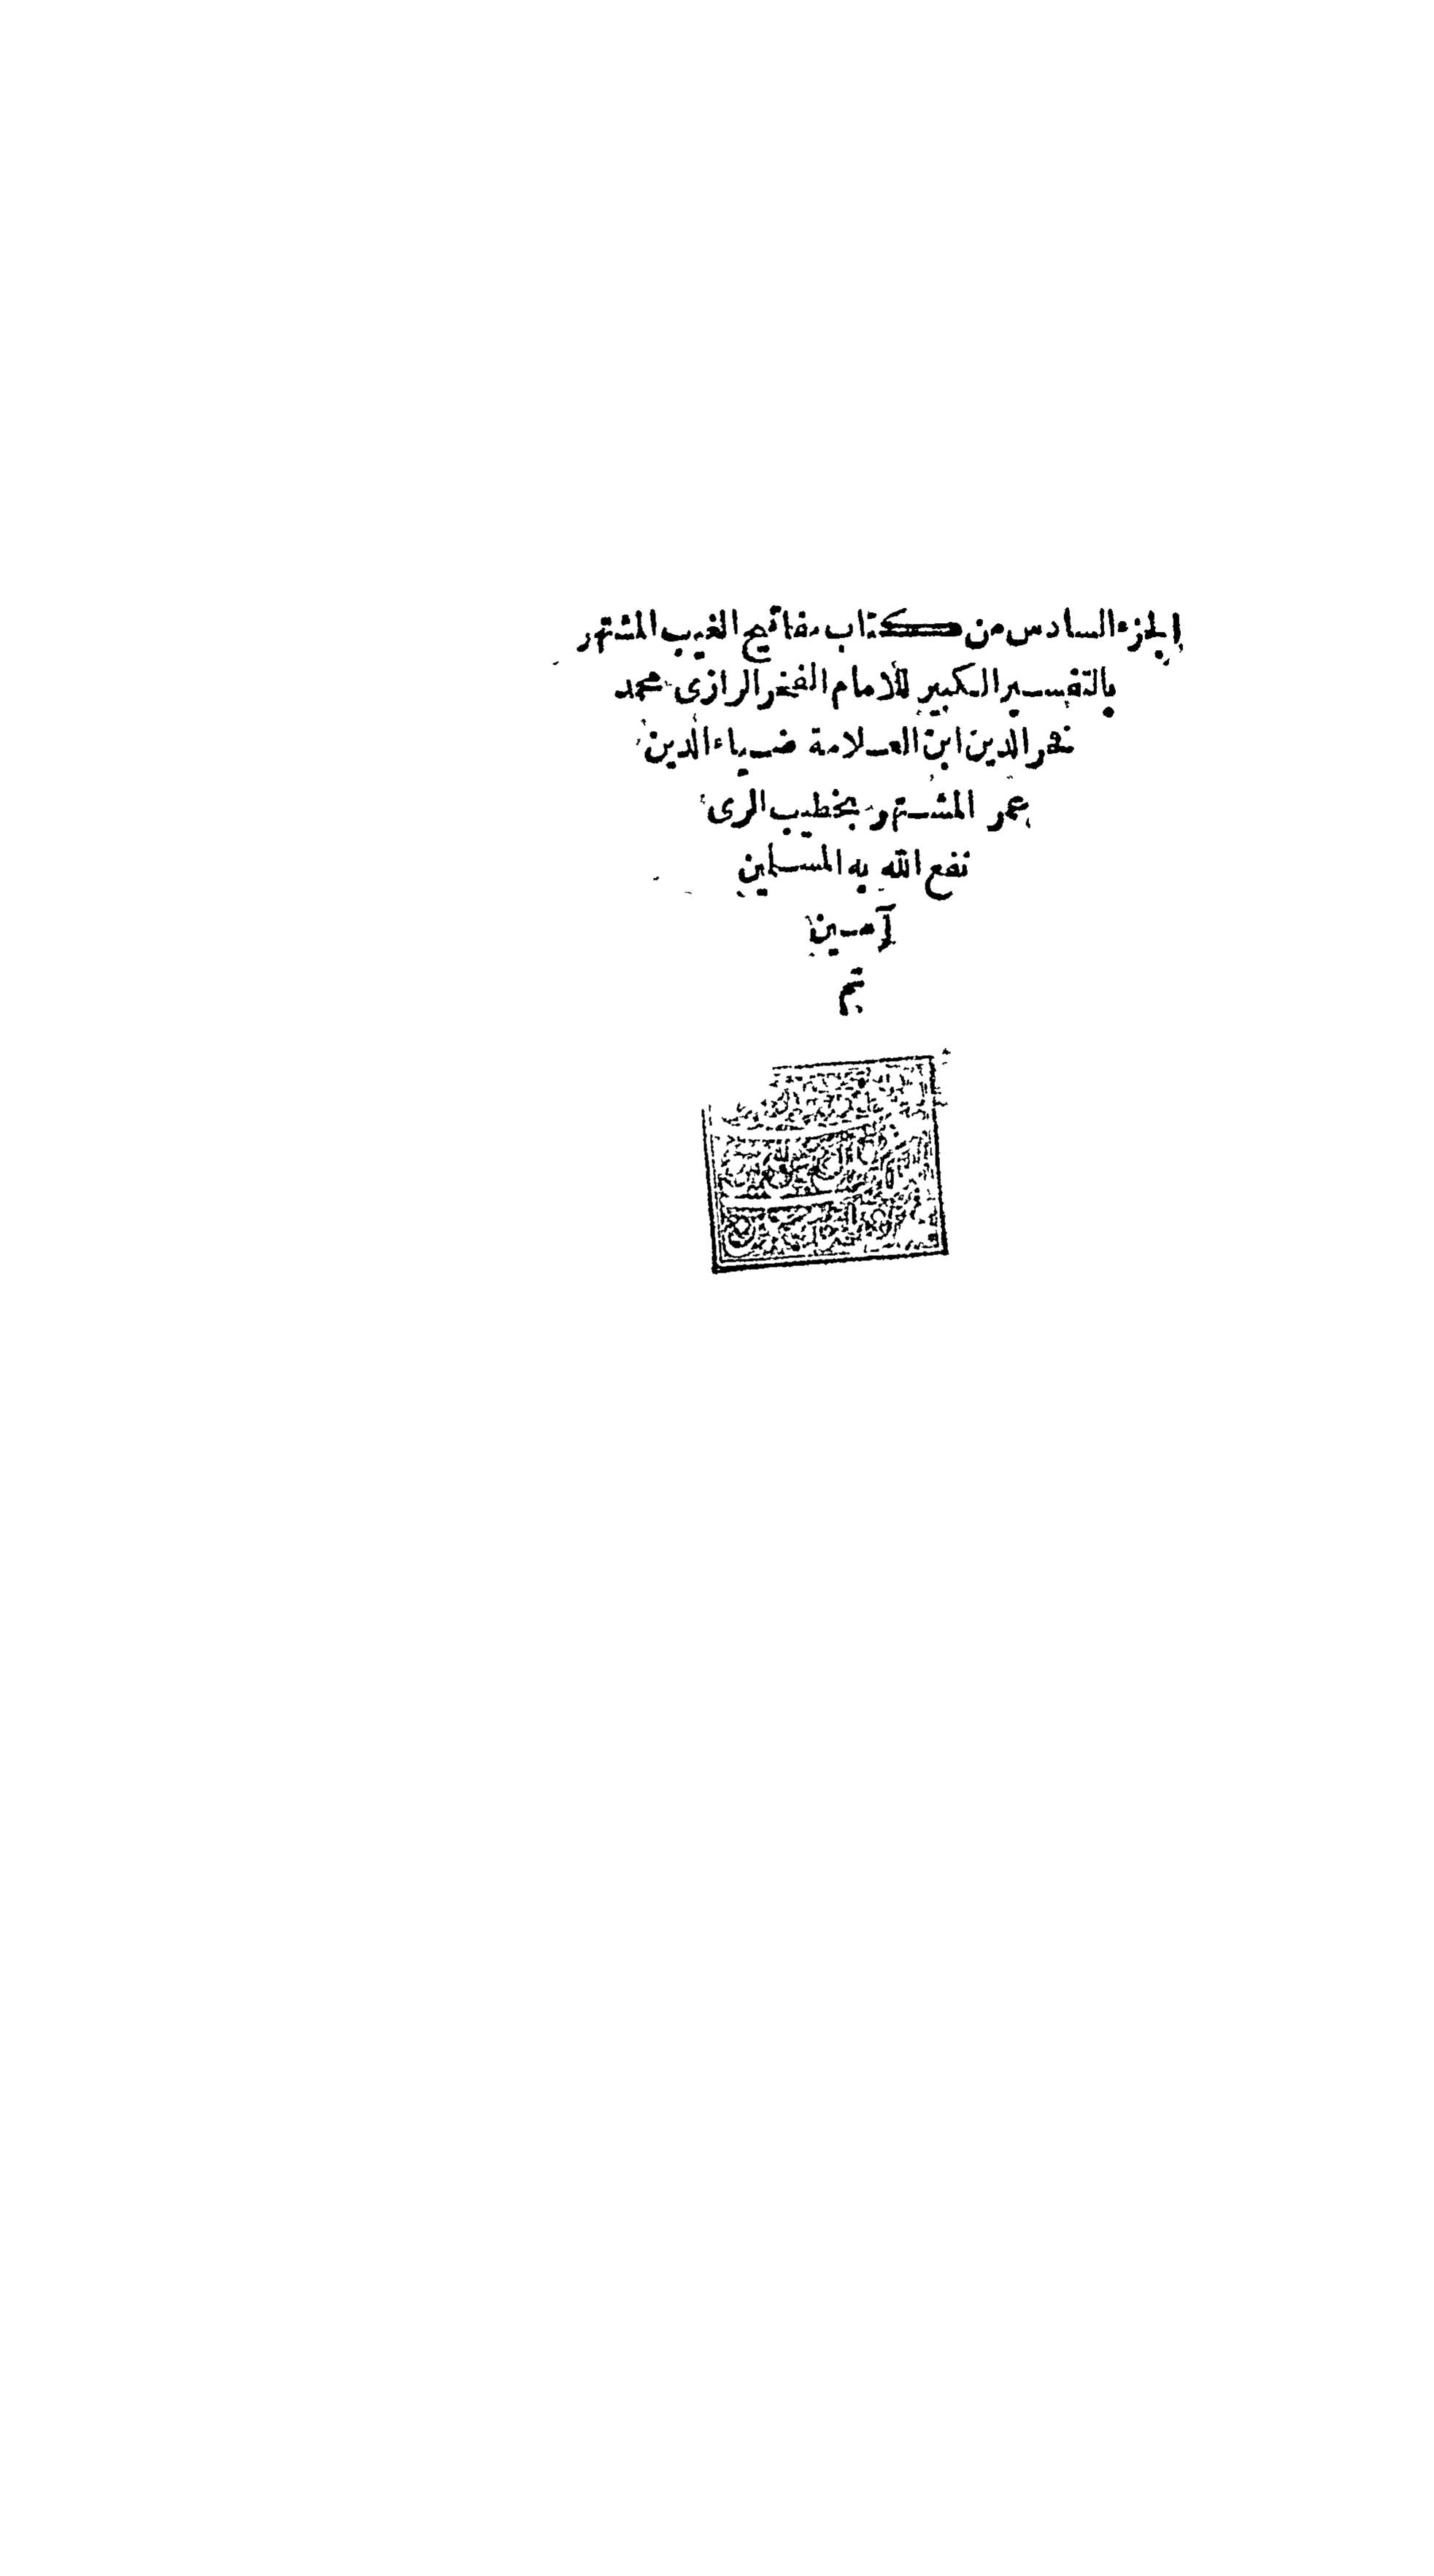 الجزء السادس من كتاب مفاتيح الغيب المشتهر
بالتفسير الكبير للامام الفخر الرازى محمد
فخر الدين ابن العلامة ضياء الدين
عمر المشتهر بخطيب الرى
نفع الله به المسلمين
آمين
تم